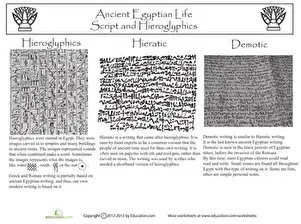 Ancient Egyptian Life
Script and Hieroglyphics
Hieroglyphics
Hieratic
Demotic
Hieroglyphics were started in Egypt. They were
images carved in to temples and many buildings
in ancient times. The images represented sounds
that when combined make a word. Sometimes
the images represents what the images is,
like water, seeds, or the sun
Greek and Roman writing is partially based on
ancient Egyptian writing, and thus, our own
modern writing is based on it.
Hieratic is a writing that came after hieroglyphics. It is
seen by most experts to be a common version that the
people of ancient time used for their own writing. It is
often seen on papyrus with ink and reed pen, rather than
carved in stone. The writing was used by scribes who
needed a shorthand version of hieroglyphics.
Demotic writing is similar to Hieratic writing.
It is the last known ancient Egyptian writing.
Demotic is seen in the latest periods of Egyptian
times, before the invasion of the Romans.
By this time, most Egyptian citizens could read
read and write. Small stones are found all throughout
Egypt with this type of writing on it. Some are lists,
other are simple personal notes.
Copyright © 2012-2013 by Education.com
More worksheets at www.education.com/worksheets